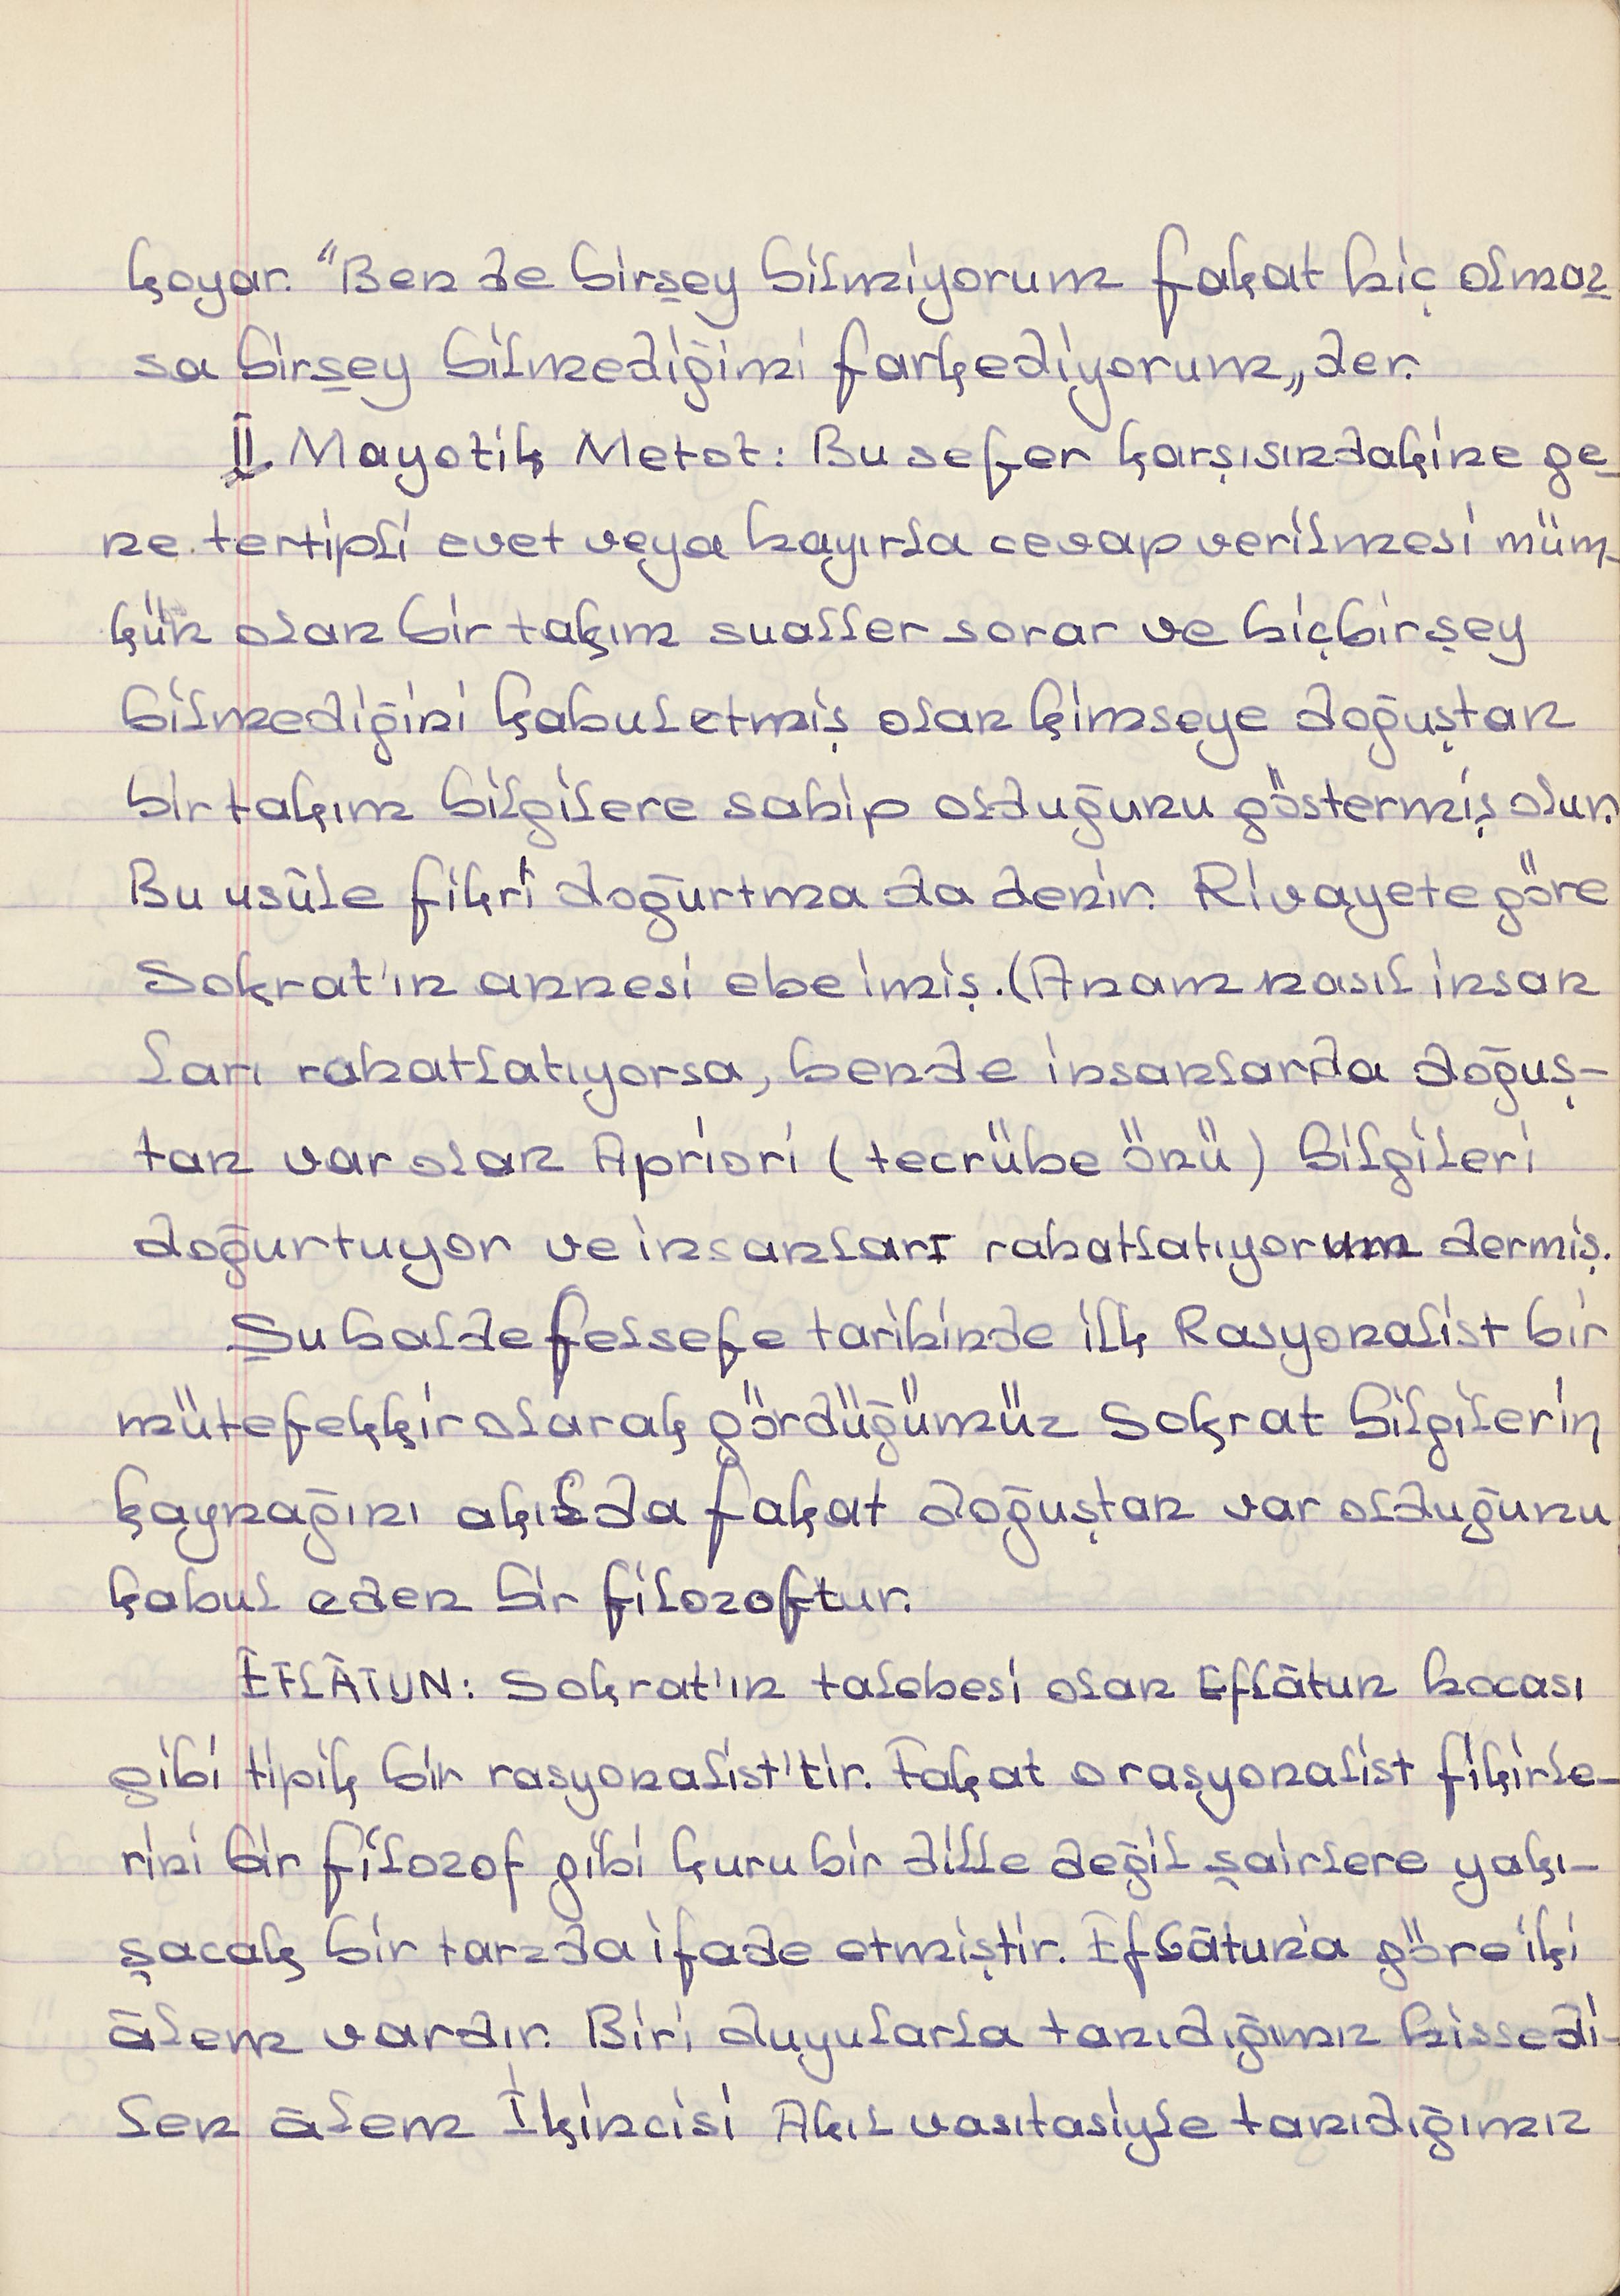 koyar. "Ben de birşey bilmiyorum fakat hiç olmaz
sa birşey bilmediğimi farkediyorum„ der.
II Mayotik Metot: Bu sefer karşısındakine ge
ne tertipli evet veya hayırla cevap verilmesi müm-
kün olan bir takım sualler sorar ve hiçbirşey
bilmediğini kabul etmiş olan kimseye doğuştan
bir takım bilgilere sahip olduğunu göstermiş olur.
Bu usûle fikri doğurtma da denir. Rivayete göre
Sokrat'ın annesi ebe imiş. (Anam nasıl insan
ları rahatlatıyorsa, bende insanlarda doğuş-
tan var olan Apriori (tecrübe önü) bilgileri
doğurtuyor ve insanları rahatlatıyorum dermiş.
Şu halde felsefe tarihinde ilk Rasyonalist bir
mütefekkir olarak gördüğümüz Sokrat bilgilerin
kaynağını akılda fakat doğuştan var olduğunu
kabul eden bir filozoftur.
EFLÂTUN: Sokrat'ın talebesi olan Eflâtun hocası
gibi tipik bir rasyonalist'tir. Fakat o rasyonalist fikirle-
rini bir filozof gibi kuru bir dille değil şairlere yakı-
şacak bir tarzda ifade etmiştir. Eflâtun'a göre iki
âlem vardır. Biri duyularla tanıdığımız hissedi-
len âlem İkincisi Akıl vasıtasiyle tanıdığımız